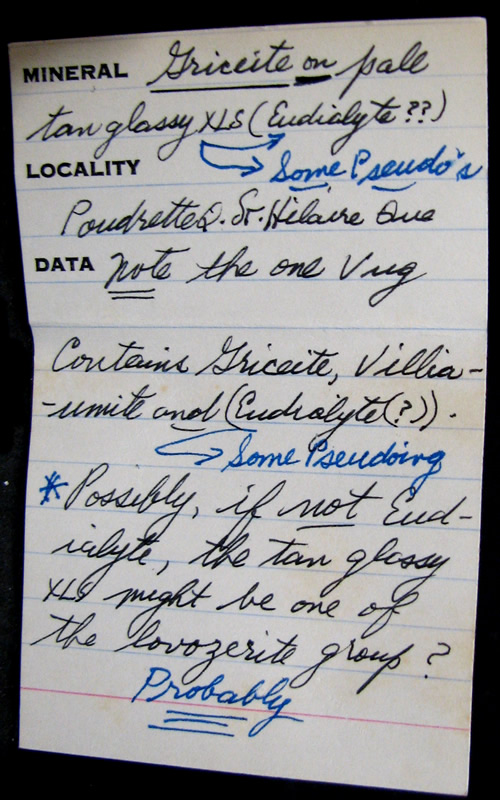 MINERAL Griceite on pale
tan glassy XLS (Eudialyte ??)
LOCALITY Some Pseudo's
Poudrette Q. St. Hilaire Que
DATA Note the one Vug
Contains Griceite, Villia-
-umite and (Eudialyte(?)).
Some Pseudoing
* Possibly, if not Eud-
ialyte, the tan glassy
XLS might be one of
the lovozerite group?
Probably